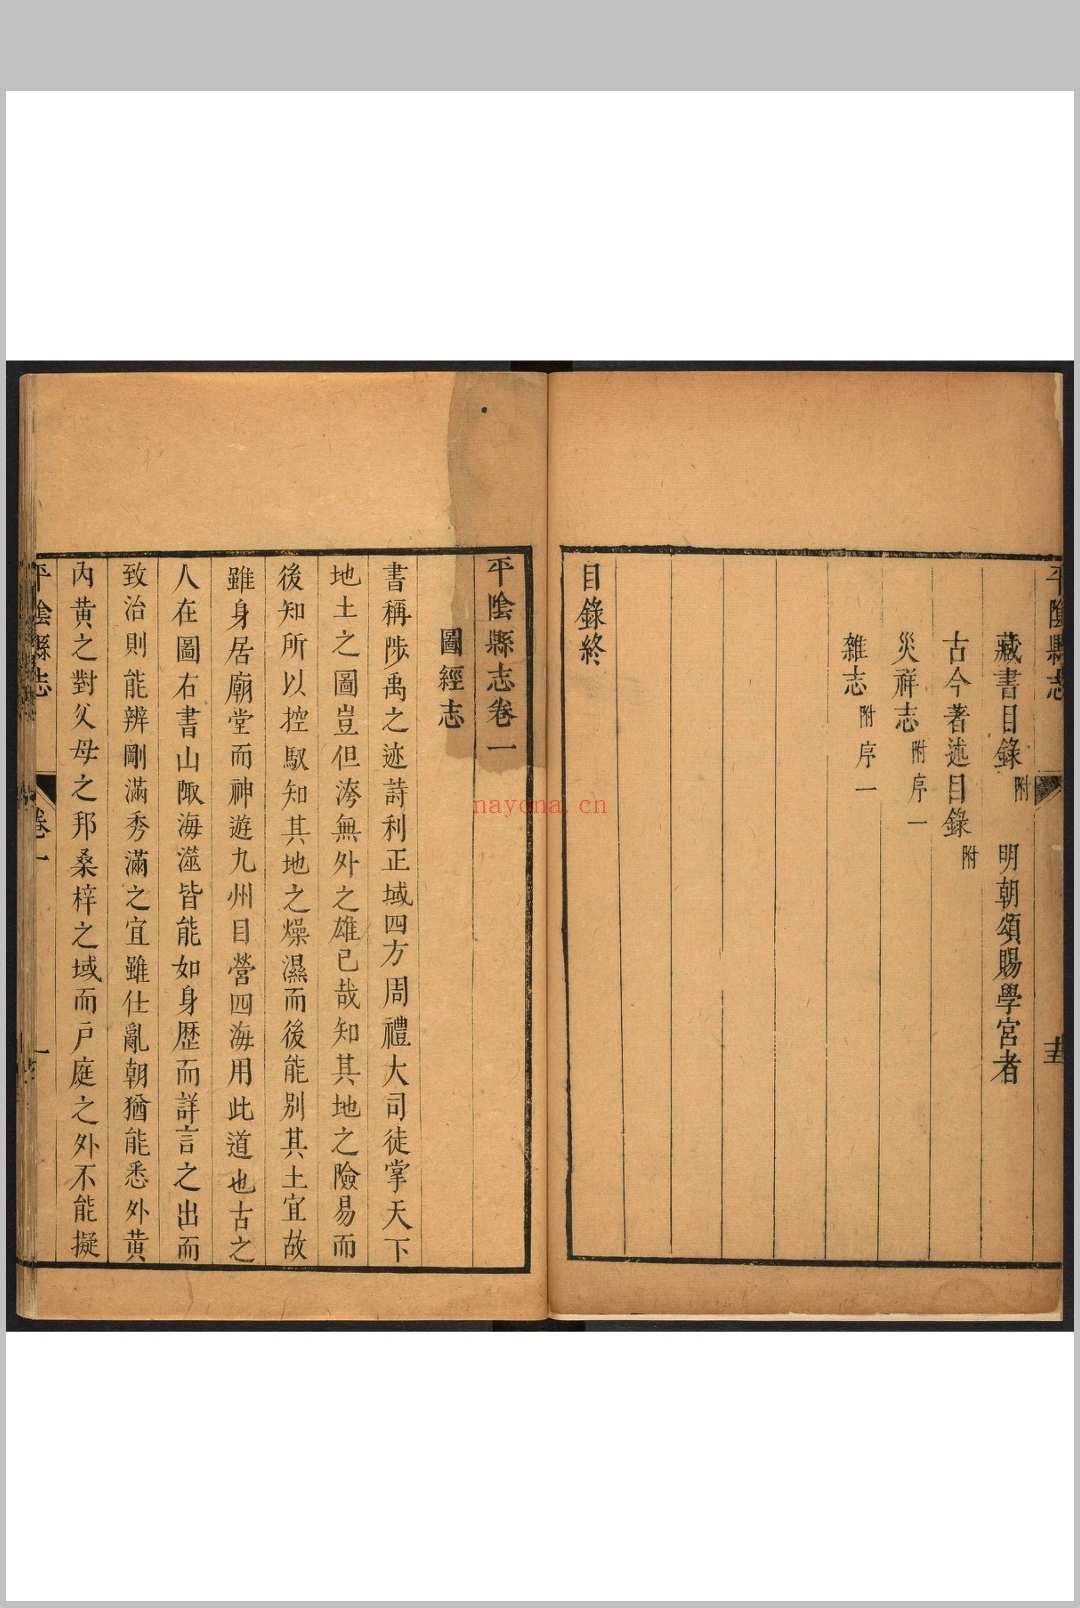 平陰縣志
藏書目錄附 明朝頒賜學宮者
古今著述目錄附
災祥志附序一
雜志附序一
目錄終
平陰縣志卷一
圖經志
書稱陟禹之迹詩利正域四方周禮大司徒掌天下
地土之圖豈但洿無外之雄已哉知其地之險易而
後知所以控馭知其地之燥濕而後能別其土宜故
雖身居廟堂而神遊九州目營四海用此道也古之
人在圖右書山陬海澨皆能如身歷而詳言之出而
致治則能辨剛滿秀滿之宜雖仕亂朝猶能悉外黃
內黃之對父母之邦桑梓之域而戶庭之外不能擬
平陰縣志
卷一
一
nayona.cn